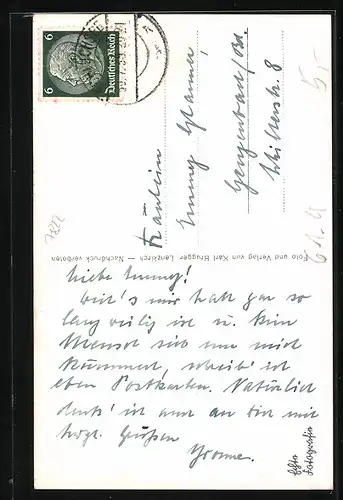 Liebe Emmy!
Weil's mir halt gar so
langweilig ist u. kein
Mensch sich um mich
kümmert, schreib' ich
eben Postkarten. Natürlich
denk' ich auch an Dich mit
herzl. Grüßen
Yvonne.
Fräulein
Emmy
Gengenbach/Bd.
Schillerstr. 8
6
Deutsches Reich
6
Foto und Verlag von Karl Brugger Lenzkirch — Nachdruck verboten
Echte
Fotografie